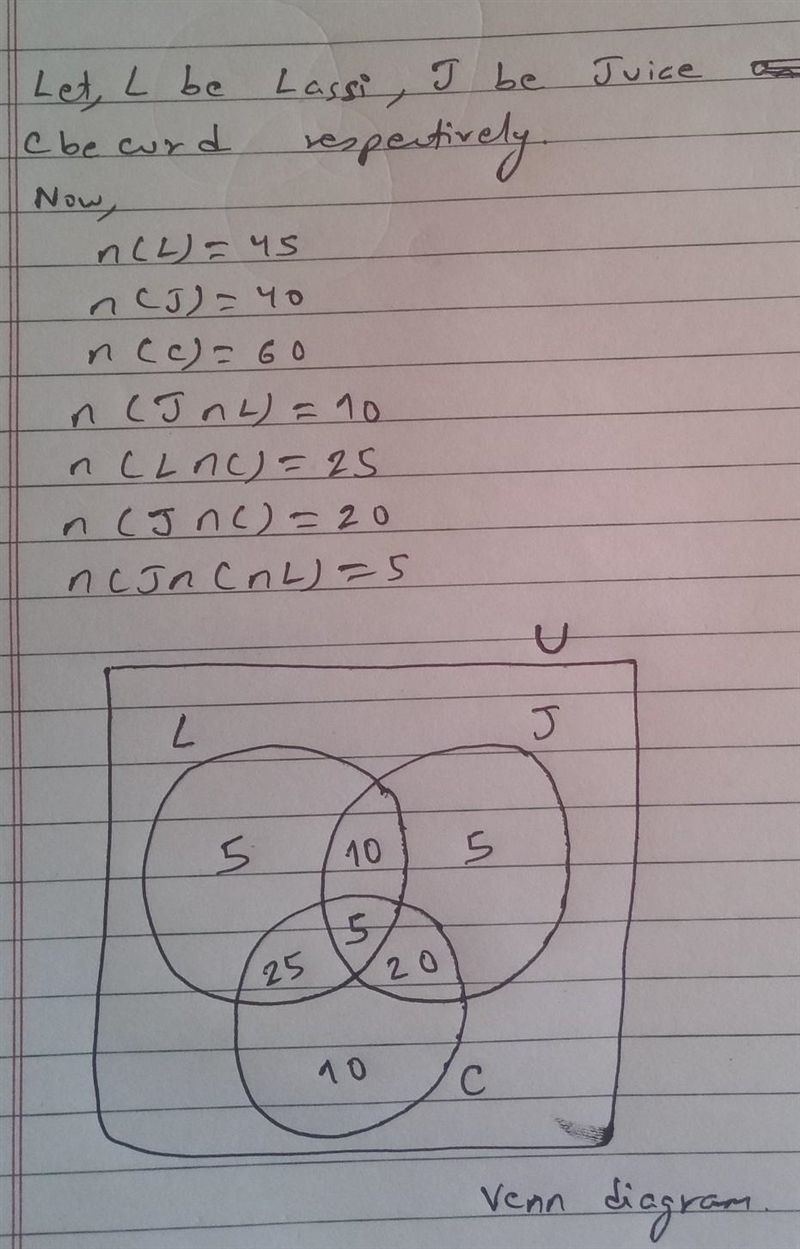 Let, L be Lassi, J be Juice
C be curd respectively.
Now,
n(L) = 45
n(J) = 40
n(C) = 60
n(J∩L) = 10
n(L∩C) = 25
n(J∩C) = 20
n(J∩C∩L) = 5
U
L J
5 10 5
5
25 20
10 C
Venn diagram.